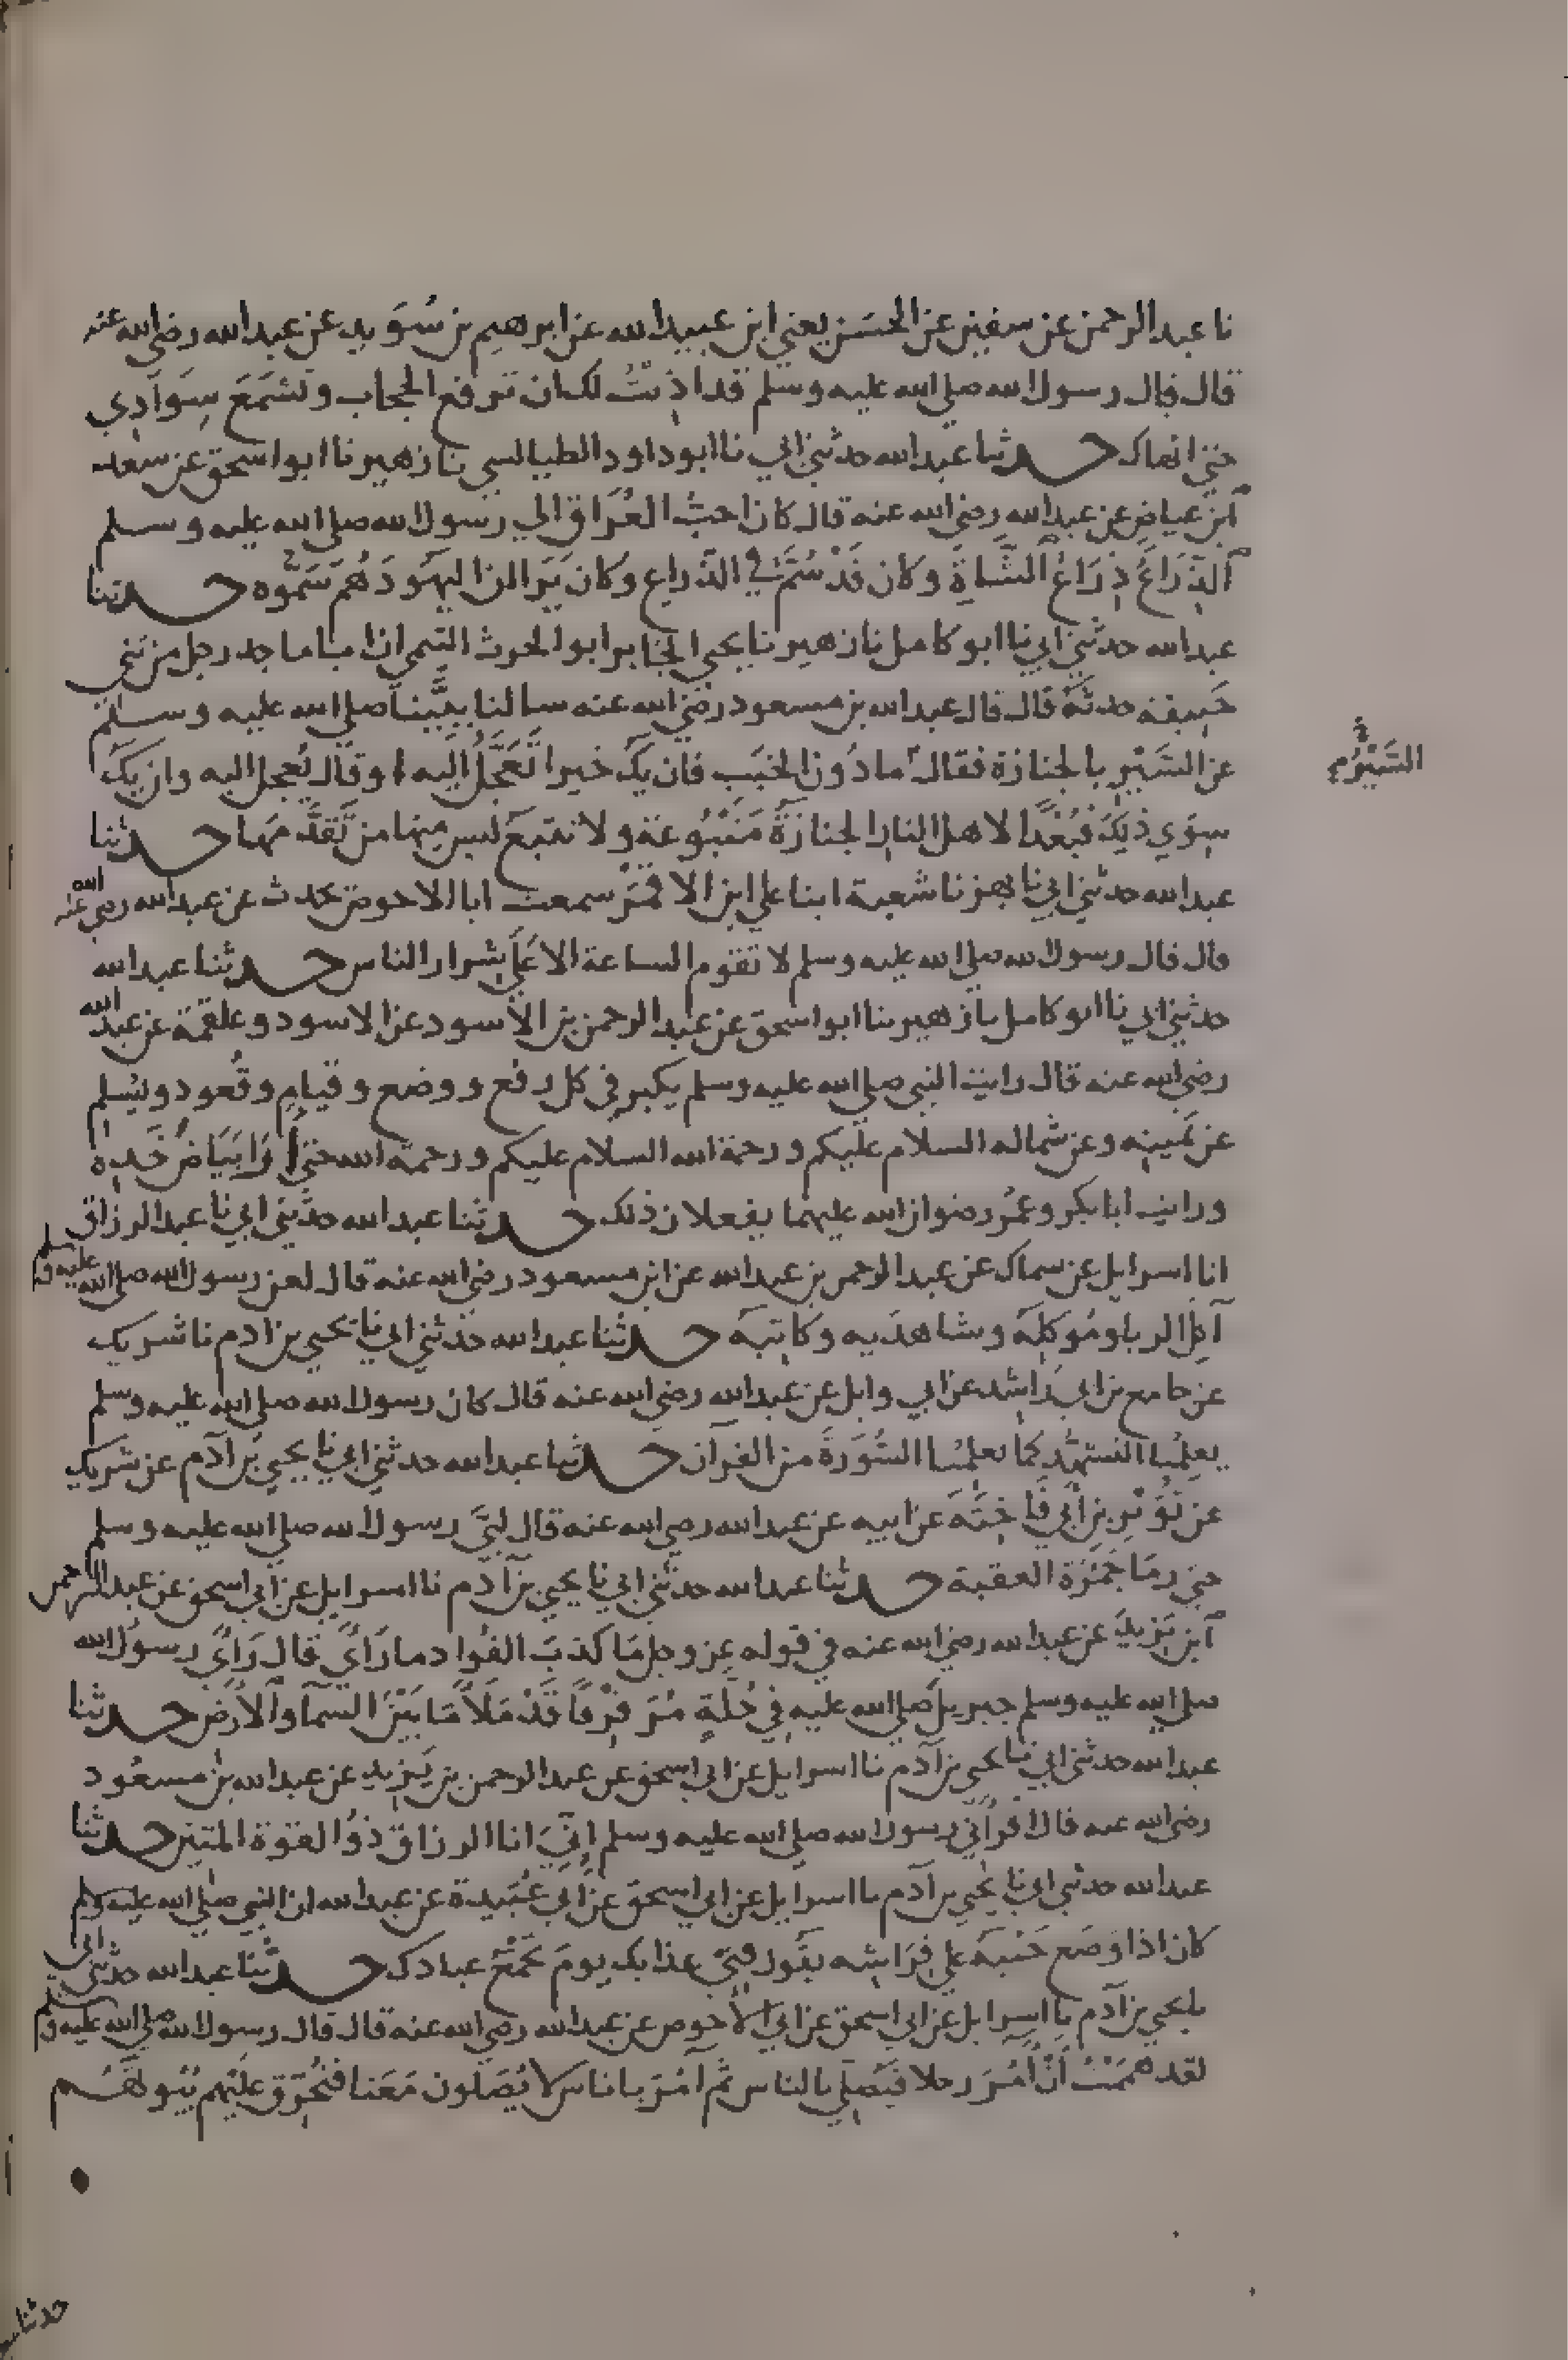 نا عبد الرحمن عن سفين عن الحسن يعني ابن عبيد الله عن ابرهيم بن سُوَيد عن عبد الله رضي الله عنه
قال قال رسول الله صلي الله عليه وسلم قد اذِنتُ لك ان ترفع الحجاب وتسْتَمَعَ سِوَادِي
حتي انهاك حدثنا عبد الله حدثني ابي نا ابو داود الطيالسي نا زهير نا ابو اسحق عن سعد
ابن عياض عن عبد الله رضي الله عنه قال كان احبُّ العُرَاق الي رسول الله صلي الله عليه وسلم
الذّرَاعُ ذِرَاعُ الشَّاةِ وكان قَدْ سُمَّ في الذّراع وكان يَرَا ان اليهود هُم سَمّوه حدثنا
عبد الله حدثني ابي نا ابو كامل نا زهير نا يحيي الجابر ابو الحرث التيمي ان ابا ماجد رجل من بني
حَنِيفة حدثهُ قال قال عبد الله بن مسعود رضي الله عنه سالنا نبِيَّنا صلي الله عليه وسلم
عن السَّيْر بالجنازة فقال ما دُون الخبَب فان يكُ خيرا تُعَجَّلُ اليه او قال تُعجل اليه وان يكُ
سِوَي ذلِكَ فبُعْدًا لاهل النار الجنازةُ مَتْبُوعَة ولا تتبعُ ليس مِنها من تَّقدَّمها حدثنا
عبد الله حدثني ابي نا بهز نا شعبة انبا علي ابن الاقمَر سمعت ابا الاحوص يحدث عن عبد الله رضي الله عنه
قال قال رسول الله صلي الله عليه وسلم لا تقوم الساعة الا عَلَي شرار الناس حدثنا عبد الله
حدثني ابي نا ابو كامل نا زهير نا ابو اسحق عن عبد الرحمن بن الاسود عن الاسود وعلقمة عن عبد الله
رضي الله عنه قال رايت النبي صلي الله عليه وسلم يكبر في كل رفع ووضع وقيامٍ وقُعود ويُسلم
عن يَمينِه وعن شماله السلام عليكم ورحمة الله السلام عليكم ورحمة الله حتي اُرَا بَيَاضُ خَدِه
ورايت ابا بكر وعُمَر رضوان الله عليهما يفعلان ذلك حدثنا عبد الله حدثني ابي نا عبد الرزاق
انا اسرايل عن سماك عن عبد الرحمن بن عبد الله عن ابن مسعود رضي الله عنه قال لعن رسول الله صلي الله عليه وسلم
آكِلَ الربا ومُوكِلَهُ وشاهدَيه وكاتِبَهُ حدثنا عبد الله حدثني ابي نا يحيي بن ادم نا شريك
عن جامع بن ابي رَاشِد عن ابي وايل عن عبد الله رضي الله عنه قال كان رسول الله صلي الله عليه وسلم
يعلِّمُنا التشهُّد كما يعلمُنا السُّورَةَ من القرآن حدثنا عبد الله حدثني ابي نا يحيي بن آدم عن شريك
عن ثُوَيْرِ بن اَبي فَاخِتَةَ عن ابيه عن عبد الله رضي الله عنه قال لبيَّ رسول الله صلي الله عليه وسلم
حتي رمَا جَمْرَة العقبة حدثنا عبد الله حدثني ابي نا يحيي بن آدم نا اسرايل عن ابي اسحق عن عبد الرحمن
ابن يَزيدَ عن عبد الله رضي الله عنه في قوله عز وجل مَا كذبَ الفُواد ما رَاَيَ قال رَاَيَ رسولُ الله
صلي الله عليه وسلم جبريل صَلي الله عليه في حُلّةٍ مُنْ رَفرَفاً قَدْ مَلَأ مَا بَيْنَ السمآ والاَرضِ حدثنا
عبد الله حدثني ابي نا يحيي بن آدم نا اسرايل عن ابي اسحق عن عبد الرحمن بن يَزيد عن عبد الله بن مسعُود
رضي الله عنه قال اقرأني رسول الله صلي الله عليه وسلم إنّيَ انا الرزاق ذوُ القوة المتين حدثنا
عبد الله حدثني ابي نا يحيي بن آدم نا اسرايل عن ابي اسحق عن ابي عُبَيدة عن عبد الله ان النبي صلي الله عليه وسلم
كان اذا وَضع جَنْبهُ علي فِرَاشِه يقُول قِني عذابك يومَ تجْمَعُ عبادك حدثنا عبد الله حدثني ابي
نا يحيي بن آدم نا اسرايل عن ابي اسحق عن ابي الاحوص عن عبد الله رضي الله عنه قال قال رسول الله صلي الله عليه وسلم
لقد هممتُ اَنْ آمُرَ رجلا فيُصَلِّي بالناس ثم آمُرَ باناسٍ لا يُصَلون مَعَنا فتُحرّق عليْهم بُيُوتهُم
حدثنا